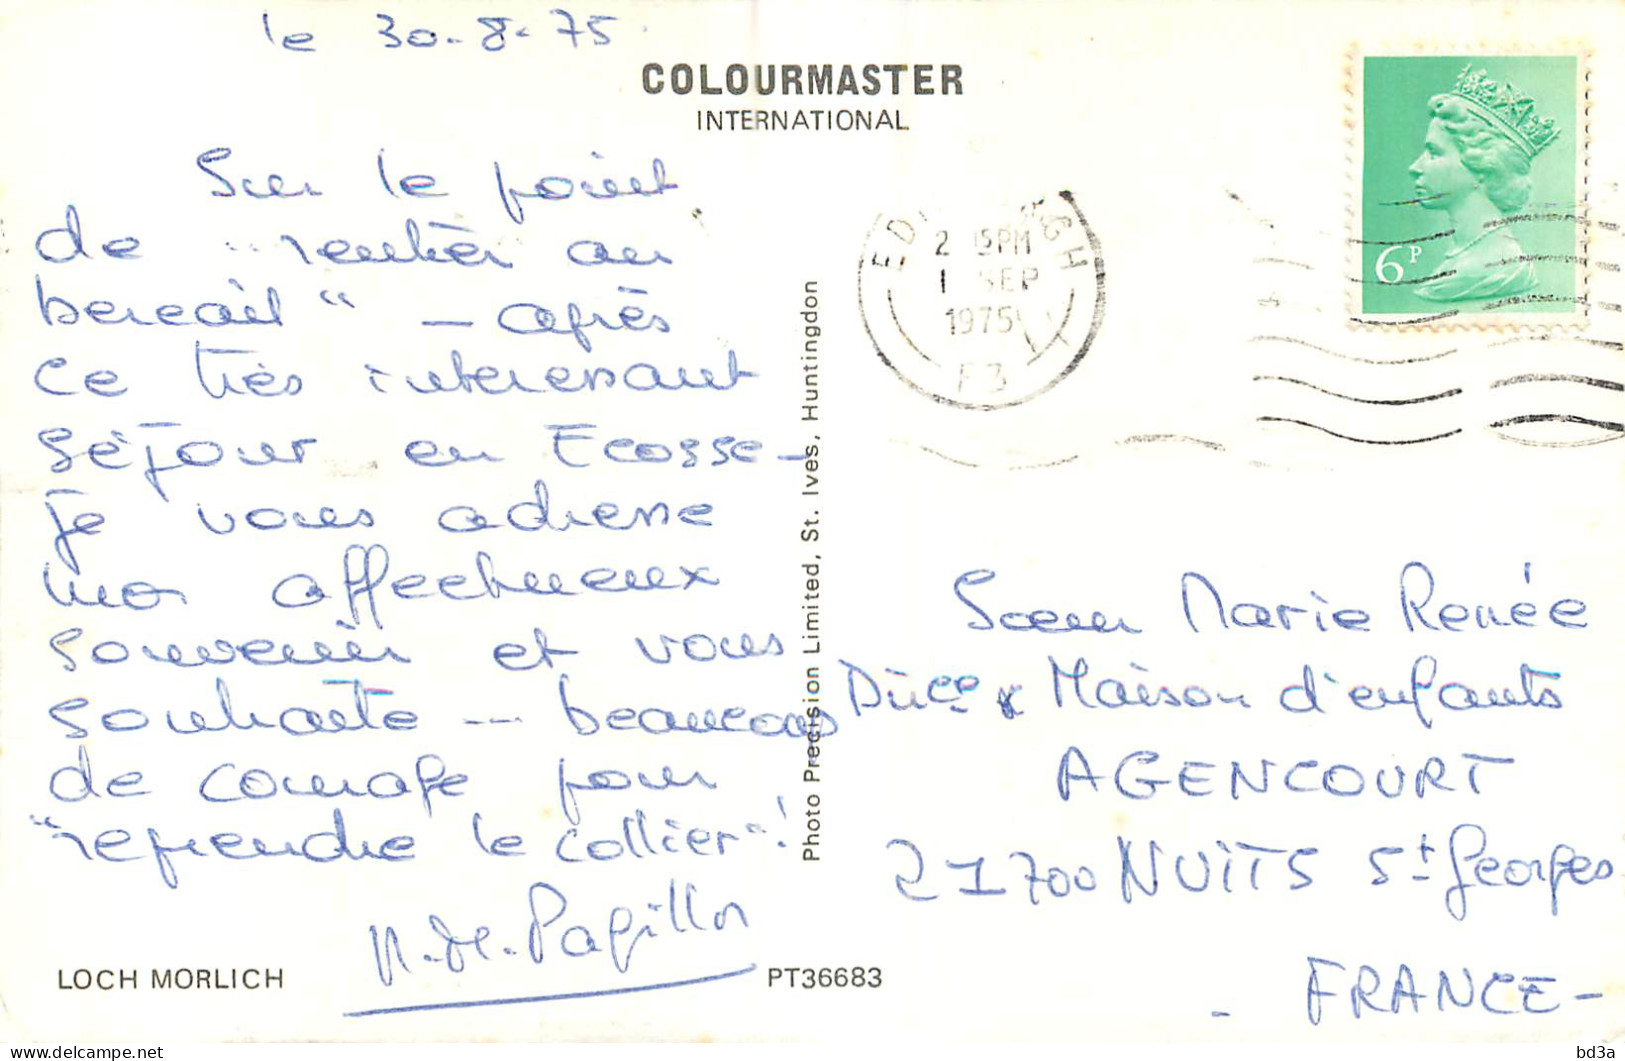 le 30-8-75.
COLOURMASTER
INTERNATIONAL
Sur le point
de "rentrer au
bercail" - après
ce très intéressant
séjour en Ecosse -
je vous adresse
mon affectueux
souvenir et vous
souhaite --- beaucoup
de courage pour
"reprendre le collier"!
Papillon
LOCH MORLICH
PT36683
Photo Precision Limited, St. Ives, Huntingdon
1 SEP
1975
6P
Soeur Marie Renée
Dirce Maison d'enfants
AGENCOURT
21700 NUITS St Georges
- FRANCE -
bd3a